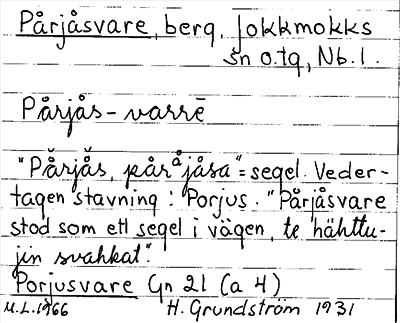 Pårjåsvare, berg, Jokkmokks
sn o. tg, Nb. l.
Pårjås-varrē
"Pårjås, påråjåsa" = segel. Veder-
tagen stavning: Porjus. "Pårjåsvare
stod som ett segel i vägen, te hähttu-
jin svahkat".
Porjusvare Gn 21 (a 4)
M.L. 1966 H. Grundström 1931